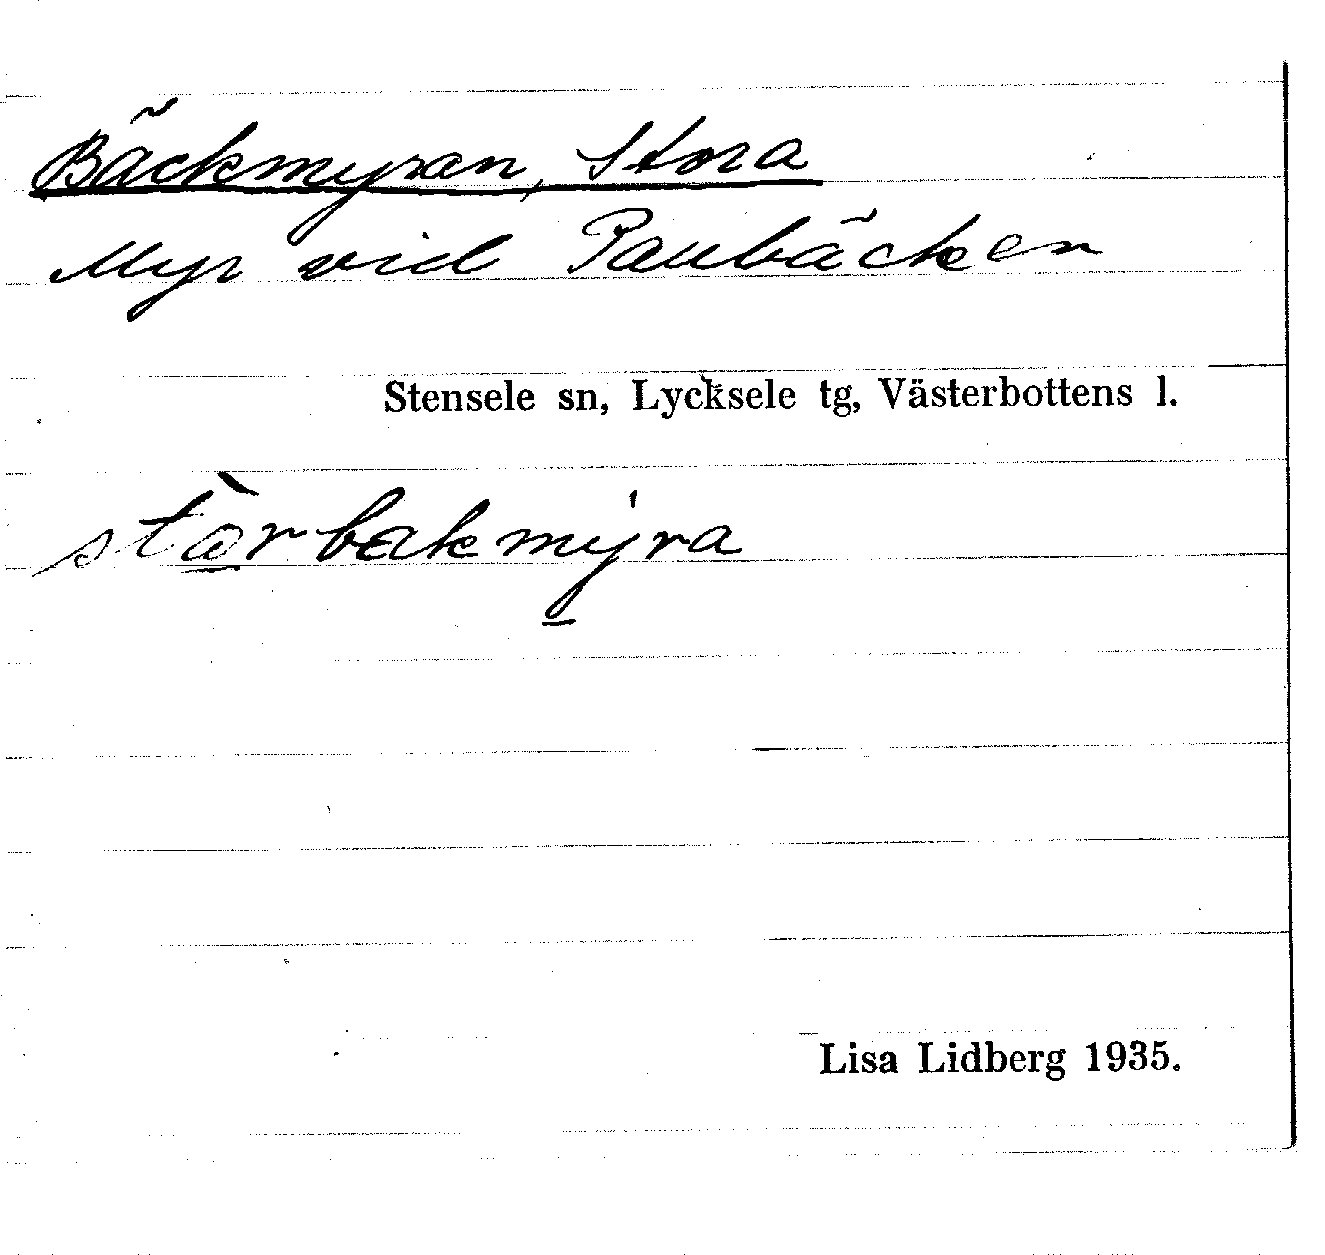 Bäckmyran, Stora
Myr vid Paubäcken
Stensele sn, Lycksele tg, Västerbottens l.
stò̱rbakmý̱ra
Lisa Lidberg 1935.